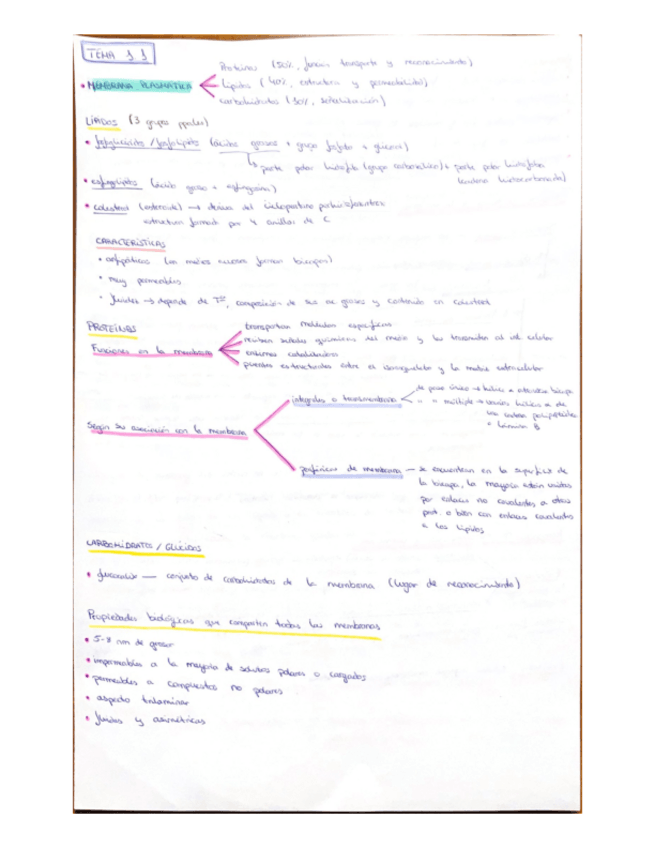 TEMA 1.1
Proteínas (50%, función transporte y reconocimiento)
• MEMBRANA PLASMÁTICA
Lípidos (40%, estructura y permeabilidad)
carbohidratos (10%, señalización)
LÍPIDOS (3 grupos ppales)
• fosfoglicéridos / fosfolípidos (ácidos grasos + grupo fosfato + glicerol)
parte polar hidrófila (grupo carboxílico) + parte polar hidrófoba
(cadena hidrocarbonada)
• esfingolípidos (ácido graso + esfingosina)
• colesterol (esteroide) → deriva del ciclopentano perhidrofenantreno
estructura formada por 4 anillos de C
CARACTERÍSTICAS
• anfipáticas (en medios acuosos forman bicapas)
• muy permeables
• fluidez → depende de Tª, composición de sus ac grasos y contenido en colesterol
PROTEÍNAS
Funciones en la membrana
transportan moléculas específicas
reciben señales químicas del medio y las transmiten al int celular
enzimas catalizadoras
puentes estructurales entre el citoesqueleto y la matriz extracelular
Según su asociación con la membrana
integrales o transmembrana
de paso único → hélice α atraviesa bicapa
" " múltiple → varias hélices α de
una cadena polipeptídica
o láminas β
periféricas de membrana — se encuentran en la superficie de
la bicapa, la mayoría están unidas
por enlaces no covalentes a otras
prot. o bien con enlaces covalentes
a los lípidos
CARBOHIDRATOS / GLÚCIDOS
• glucocálix — conjunto de carbohidratos de la membrana (lugar de reconocimiento)
Propiedades biológicas que comparten todas las membranas
• 5-8 nm de grosor
• impermeables a la mayoría de solutos polares o cargados
• permeables a compuestos no polares
• aspecto trilaminar
• fluidas y asimétricas